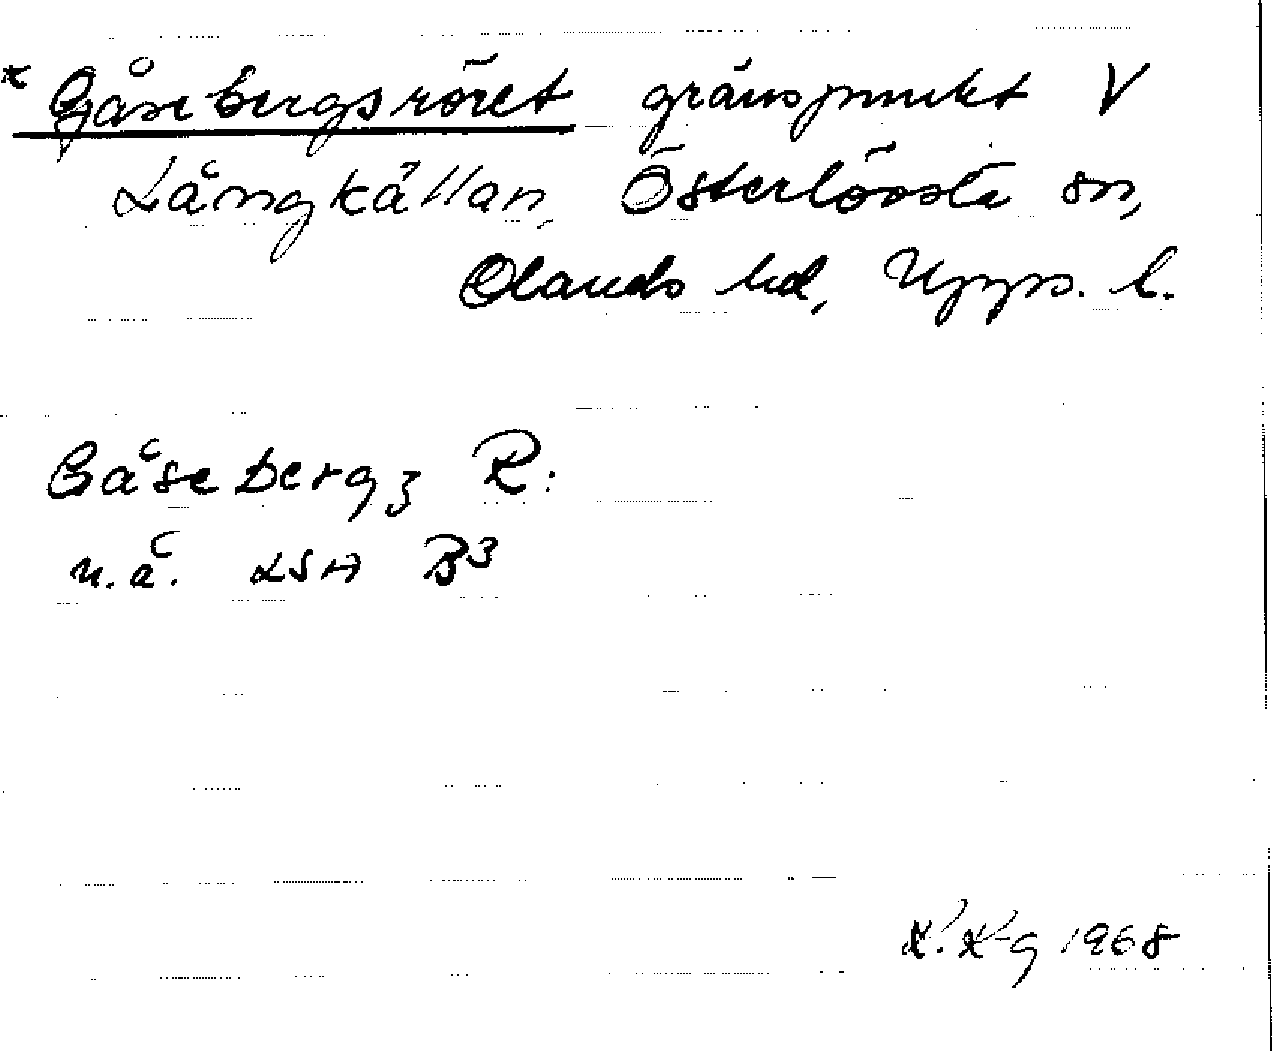 * Gåsebergsröret gränspunkt V
Långkällan, Österlövsta sn,
Olands hd, Upps. l.
Gåsebergz R:
n.ä. LSA B3
1968